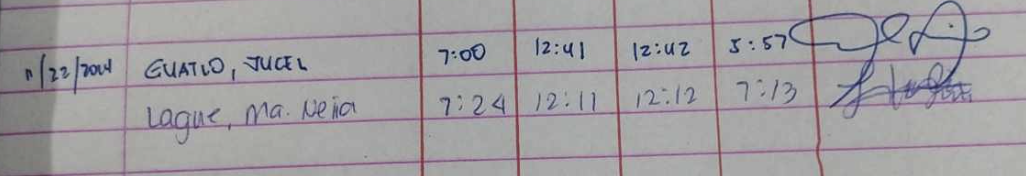 11/22/2024 GUATLO, JUCEL 7:00 12:41 12:42 5:57
Lague, Ma. Neiia 7:24 12:11 12:12 7:13